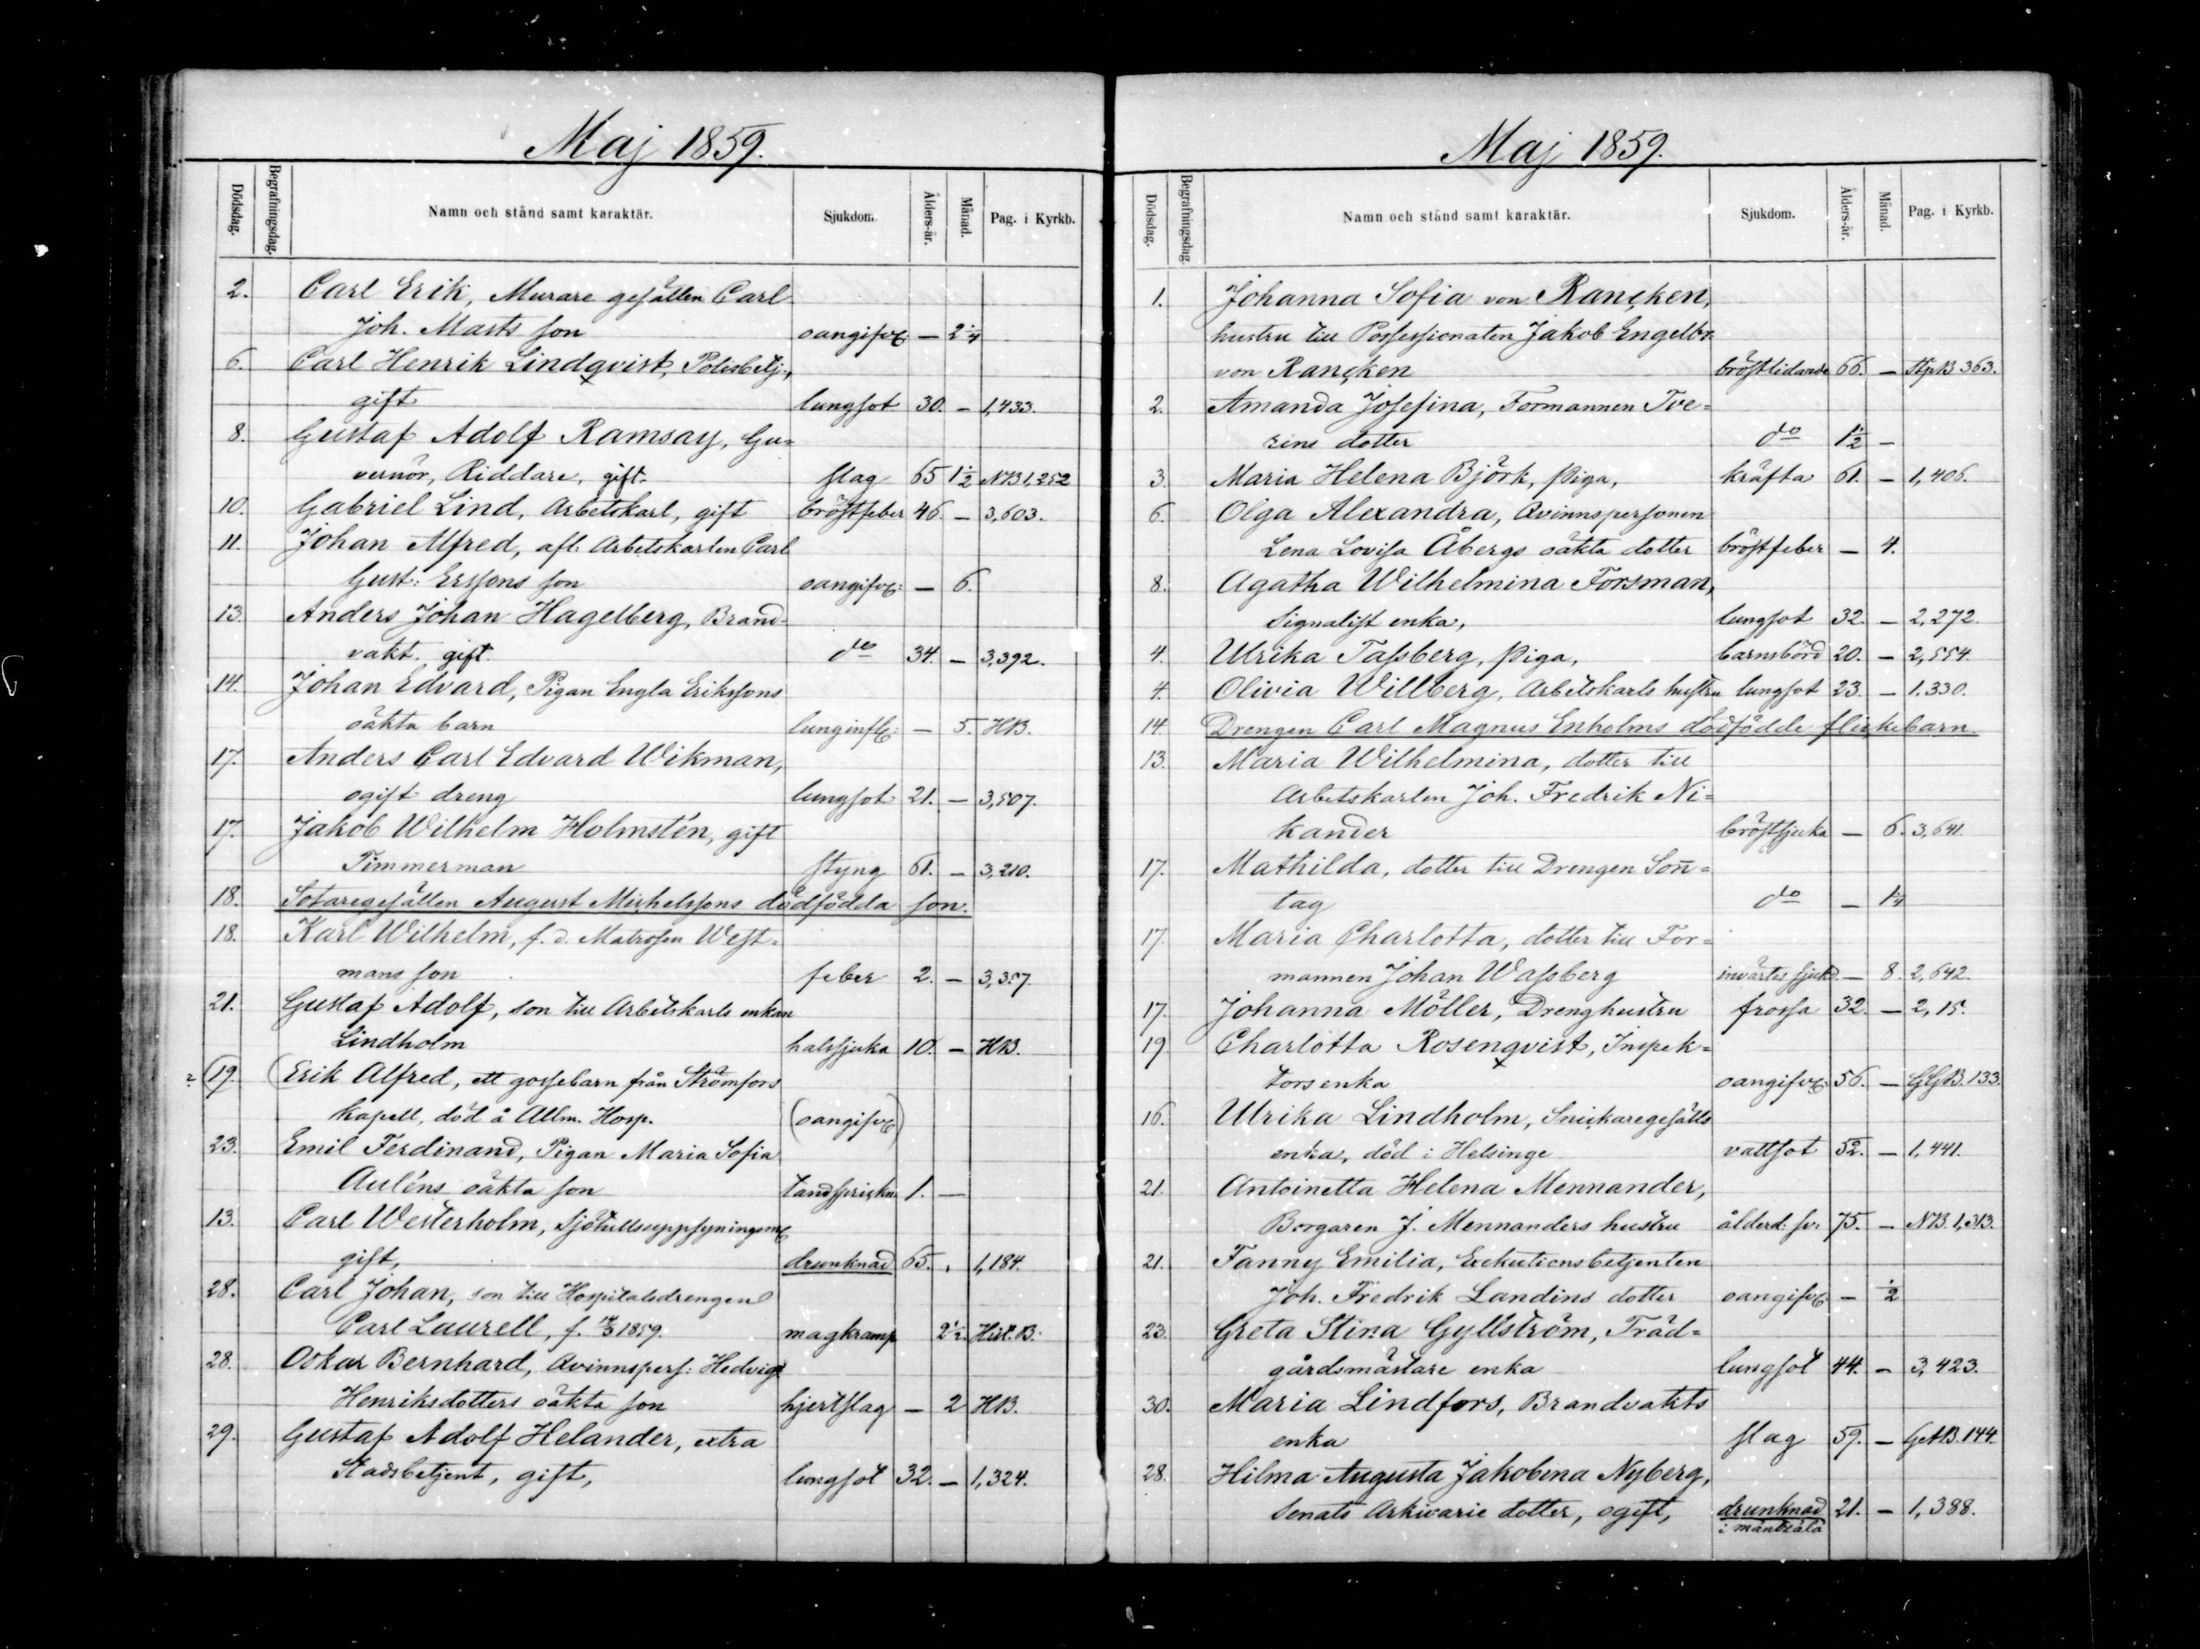 Maj 1859.
Dödsdag. Begrafningsdag. Namn och stånd samt karaktär. Sjukdom. Ålders-år. Månad. Pag. i Kyrkb.
2. Carl Erik, Murare gesällen Carl
Joh. Marts son oangifvet — 2 1/4
6. Carl Henrik Lindqvist, Polisbetj.,
gift lungsot 30. — 1,433.
8. Gustaf Adolf Ramsay, Gu=
vernör, Riddare, gift. slag 65 1 1/2 NB 1,252
10. Gabriel Lind, Arbetskarl, gift bröstfeber 46. — 3,603.
11. Johan Alfred, afl. Arbetskarlen Carl
Gust: Erssons son oangifvet: — 6.
13. Anders Johan Hagelberg, Brand=
vakt. gift. do 34. — 3,392.
14. Johan Edvard, Pigan Engla Erikssons
oäkta barn lunginfl: — 5. HB.
17. Anders Carl Edvard Wikman,
ogift dreng lungsot 21. — 3,507.
17. Jakob Wilhelm Holmstén, gift
Timmerman styng 61. — 3,210.
18. Sotaregesällen August Michelssons dödfödda son.
18. Karl Wilhelm, f. d. Matrosen West=
mans son feber 2. — 3,357.
21. Gustaf Adolf, son till Arbetskarls enkan
Lindholm halssjuka 10. — HB.
? 19. (Erik Alfred, ett gossebarn från Strömfors
kapell, död å Allm. Hosp. (oangifvet)
23. Emil Ferdinand, Pigan Maria Sofia
Auléns oäkta son tandsprickn. 1. —
13. Carl Westerholm, Sjötullsuppsyningsm
gift, drunknad 65. . 1,184.
28. Carl Johan, son till Hospitalsdrengen
Carl Laurell, f. 1859. magkramp 2 1/2. Hist. B.
28. Oskar Bernhard, Qvinnspers: Hedvig
Henriksdotters oäkta son hjertslag — 2 HB.
29. Gustaf Adolf Helander, extra
Stadsbetjent, gift, lungsot 32. — 1,324.
Maj 1859.
Dödsdag. Begrafningsdag. Namn och stånd samt karaktär. Sjukdom. Ålders-år. Månad. Pag. i Kyrkb.
1. Johanna Sofia von Rancken,
hustru till Possessionaten Jakob Engelbr.
von Rancken bröstlidande 66. — StpB 363.
2. Amanda Josefina, Formannen Tve=
rins dotter do 1 1/2 —
3. Maria Helena Björk, Piga, kräfta 61. — 1,406.
6. Olga Alexandra, Qvinnspersonen
Lena Lovisa Åbergs oäkta dotter bröstfeber — 4.
8. Agatha Wilhelmina Forsman,
Signalist enka, lungsot 32. — 2,272.
4. Ulrika Tassberg, Piga, barnsbörd 20. — 2,554.
4. Olivia Willberg, Arbetskarls hustru lungsot 23. — 1.330.
14. Drengen Carl Magnus Enholms dödfödde flickebarn.
13. Maria Wilhelmina, dotter till
Arbetskarlen Joh. Fredrik Ni=
kander bröstsjuka — 6. 3,641.
17. Mathilda, dotter till Drengen Son̄=
tag do — 1/4
17. Maria Charlotta, dotter till For=
mannen Johan Wassberg invärtes sjukd. — 8. 2,642.
17. Johanna Möller, Drenghustru frossa 32. — 2,15.
19. Charlotta Rosenqvist, Inspek=
tors enka oangifvet: 56. — GGB. 133.
16. Ulrika Lindholm, Snickaregesälls
enka, död i Helsinge vattsot 52. — 1,441.
21. Antoinetta Helena Mennander,
Borgaren J. Mennanders hustru ålderd: sv: 75. — NB. 1,313.
21. Fanny Emilia, Exekutionsbetjenten
Joh. Fredrik Landins dotter oangifvet — 1/2
23. Greta Stina Gyllström, Träd=
gårdsmästare enka lungsot 44. — 3,423.
30. Maria Lindfors, Brandvakts
enka slag 59. — GAB. 144.
28. Hilma Augusta Jakobina Nyberg,
Senats Arkivarie dotter, ogift, drunknad 21. — 1,388.
i Mäntsälä